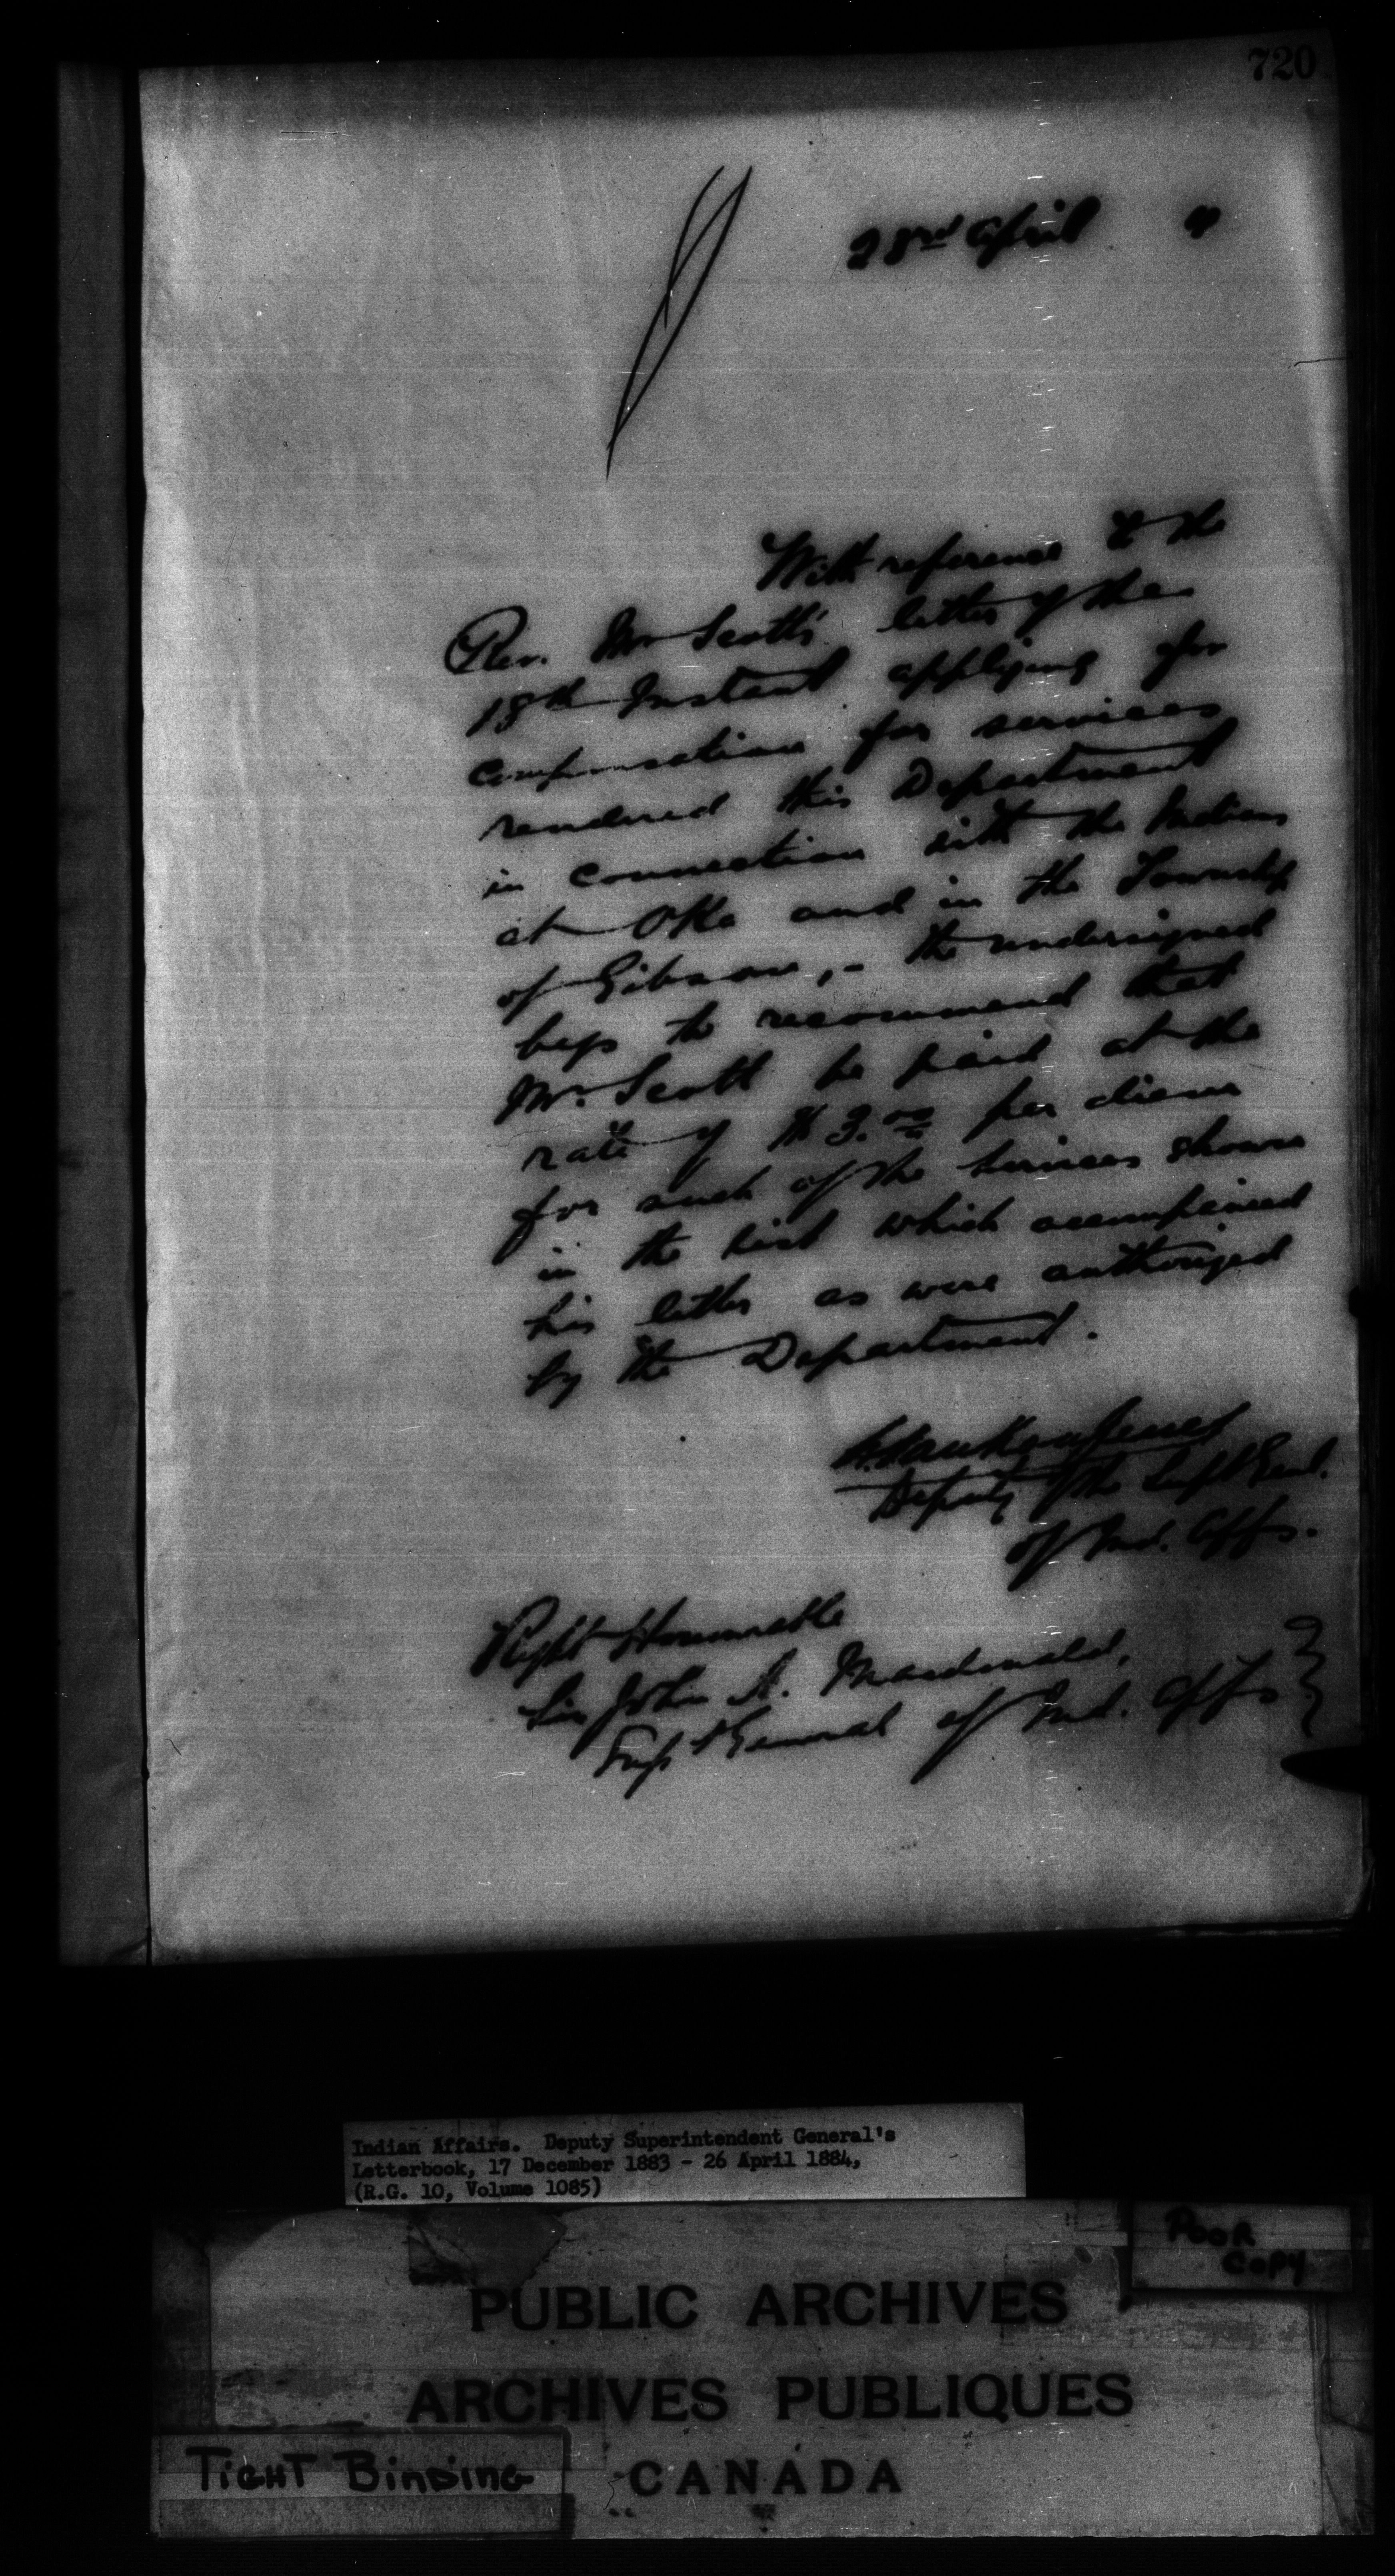 720
23rd April
With reference to the
Rev. Mr Scott's letter of the
18th Instant applying for
compensation for services
rendered this Department
in connection with the Indians
at Oka and in the Township
of Gibson,- the undersigned
begs to recommend that
Mr. Scott be paid at the
rate of $3.00 per diem
for such of the services shown
in the list which accompanied
his letter as were authorized
by the Department.
L. VanKoughnet
Deputy of the Supt Genl.
of Ind. Affs.
Right Honourable
Sir John A. Macdonald,
Supt General of Ind. Affs
Indian Affairs. Deputy Superintendent General's
Letterbook, 17 December 1883 - 26 April 1884,
(R.G. 10, Volume 1085)
POOR
COPY
PUBLIC ARCHIVES
ARCHIVES PUBLIQUES
TIGHT BINDING
CANADA